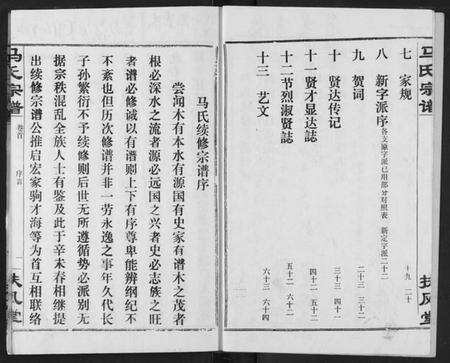 马氏宗谱
七 家规 十九 二十
八 新字派序 各支原字派已用部分对照表 新定字派二十二
九 贺词 二十三 三十二
十 贤达传记 三十三 四十一
十一 贤才显达誌 四十二 五十一
十二 节烈淑贤誌 五十二 六十二
十三 艺文 六十三 六十四
扶风堂
马氏续修宗谱序
尝闻木有本水有源国有史家有谱木之茂者
根必深水之流者源必远国之兴者史必志族之旺
者谱必修诚以有谱则上下有序尊卑能辨纲纪不
不紊也但历次修谱并非一劳永逸之事年久代长
子孙繁衍不予续修则后世无所遵循势必派别无
据宗秩混乱全族人士有鉴及此于辛未春相继提
出续修宗谱公推启宏家驹才海等为首互相联络
马氏宗谱
卷首
序言
一
扶风堂